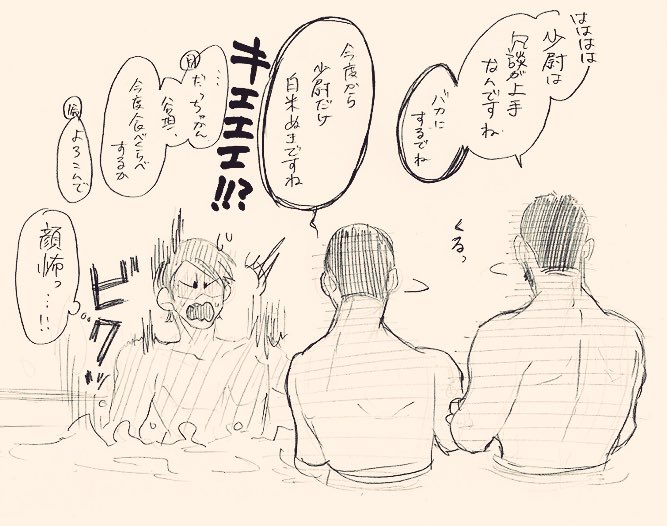 はははは
少尉は
冗談が上手
なんですね
バカに
するでね
今度から
少尉だけ
白米ぬきですね
キエエエ!!?
…
だっちゃかん
貧担、
今度食べくらべ
するか
よろこんで
くるっ
顔
怖っ…!!
ビクッ